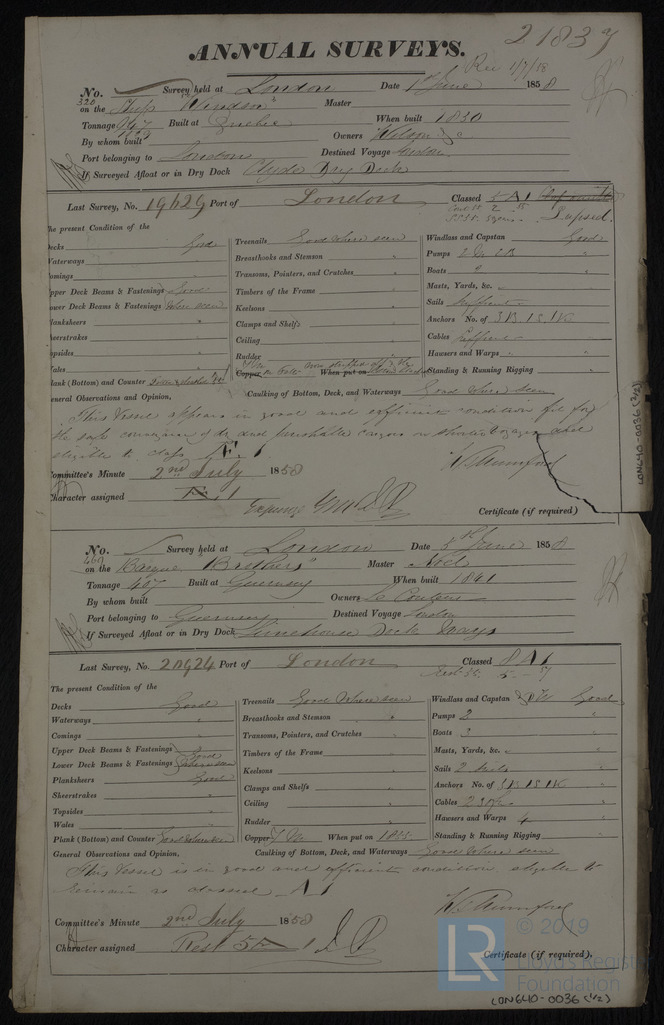 21837
ANNUAL SURVEYS.
Rec 1/7/58
No. Survey held at London Date 1st June 1858
320 on the Ship "Windsor" Master
Tonnage Built at When built 1830
By whom built Owners Wilson & Co
Port belonging to London Destined Voyage London
If Surveyed Afloat or in Dry Dock Clyde Dry Dock
Last Survey, No. 19629 Port of London Classed 5 A 1
Lapsed.
The present Condition of the
Decks Good Treenails Good where seen Windlass and Capstan Good
Waterways " Breasthooks and Stemson " Pumps
Comings " Transoms, Pointers, and Crutches " Boats
Upper Deck Beams & Fastenings Good Timbers of the Frame " Masts, Yards, &c.
Lower Deck Beams & Fastenings where seen Keelsons " Sails Sufficient
Planksheers " Clamps and Shelfs " Anchors No. of 3B 1S 1K
Sheerstrakes " Ceiling " Cables Sufficient
Topsides " Rudder " Hawsers and Warps "
Wales " Copper When put on Standing & Running Rigging "
Plank (Bottom) and Counter Caulking of Bottom, Deck, and Waterways Good where seen
General Observations and Opinion,
This Vessel appears in good and efficient condition fit for
the safe conveyance of dry and perishable cargoes on shorter voyages and
eligible to class Æ 1
W. Rumford
Committee's Minute 2nd July 1858
Character assigned Æ 1
Certificate (if required)
LON640-0036 (2/2)
No. Survey held at London Date 5th June 1858
469 on the Barque "Brothers" Master Noel
Tonnage 467 Built at Guernsey When built 1841
By whom built Owners Le Couteur
Port belonging to Guernsey Destined Voyage London
If Surveyed Afloat or in Dry Dock Limehouse Dock Ways
Last Survey, No. 20924 Port of London Classed 8 A 1
Rest 55. 5 - 57
The present Condition of the
Decks Good Treenails Good where seen Windlass and Capstan Good
Waterways " Breasthooks and Stemson " Pumps 2 "
Comings " Transoms, Pointers, and Crutches " Boats 3 "
Upper Deck Beams & Fastenings Good Timbers of the Frame " Masts, Yards, &c. "
Lower Deck Beams & Fastenings where seen Keelsons " Sails 2 suits "
Planksheers Good Clamps and Shelfs " Anchors No. of 3B 1S 1K "
Sheerstrakes " Ceiling " Cables "
Topsides " Rudder " Hawsers and Warps 4 "
Wales " Copper Y M When put on 1855 Standing & Running Rigging "
Plank (Bottom) and Counter Good where seen Caulking of Bottom, Deck, and Waterways Good where seen
General Observations and Opinion,
This Vessel is in good and efficient condition, eligible to
remain as classed A 1
W. Rumford
Committee's Minute 2nd July 1858
Character assigned Rest 5 A 1
Certificate (if required).
LR © 2019
Lloyd's Register
Foundation
LON640-0036 (1/2)